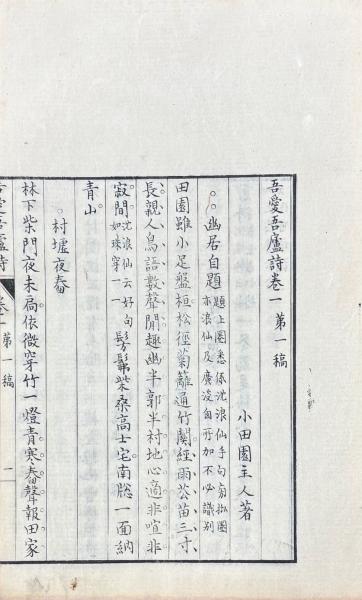 吾愛吾廬詩卷一 第一稿
小田園主人著
幽居自題 題上圈悉係沈浪仙手句旁拟圈
亦浪仙及廣淩自所加不必識別
田園雖小足盤桓松徑菊籬通竹關經雨苔苗三寸
長親人鳥語數聲閒趣幽半郭半村地心適非喧非
寂間 沈浪仙云好句
如珠穿一一 髣髴柴桑高士宅南牕一面納
青山
村墟夜舂
林下柴門夜未扃依微穿竹一燈青寒舂聲報田家
吾愛吾廬詩 卷一 第一稿 一